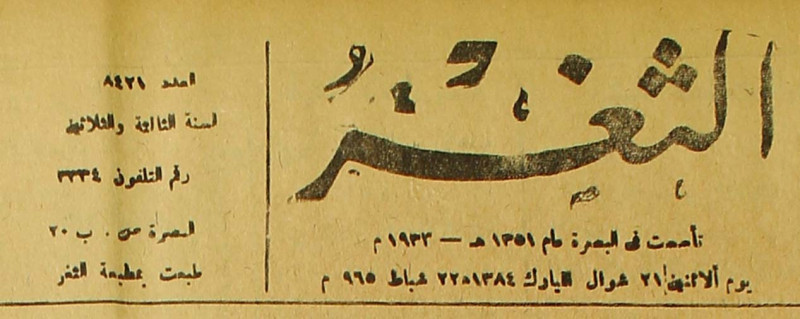 الثغر
تأسست في البصرة عام ١٣٥١ هـ — ١٩٣٣ م
يوم الاثنين ٢١ شوال المبارك ١٣٨٤ - ٢٢ شباط ٩٦٥ م
العدد ٨٤٢١
السنة الثالثة والثلاثين
رقم التلفون ٣٣٣٤
البصرة ص . ب ٢٠
طبعت بمطبعة الثغر